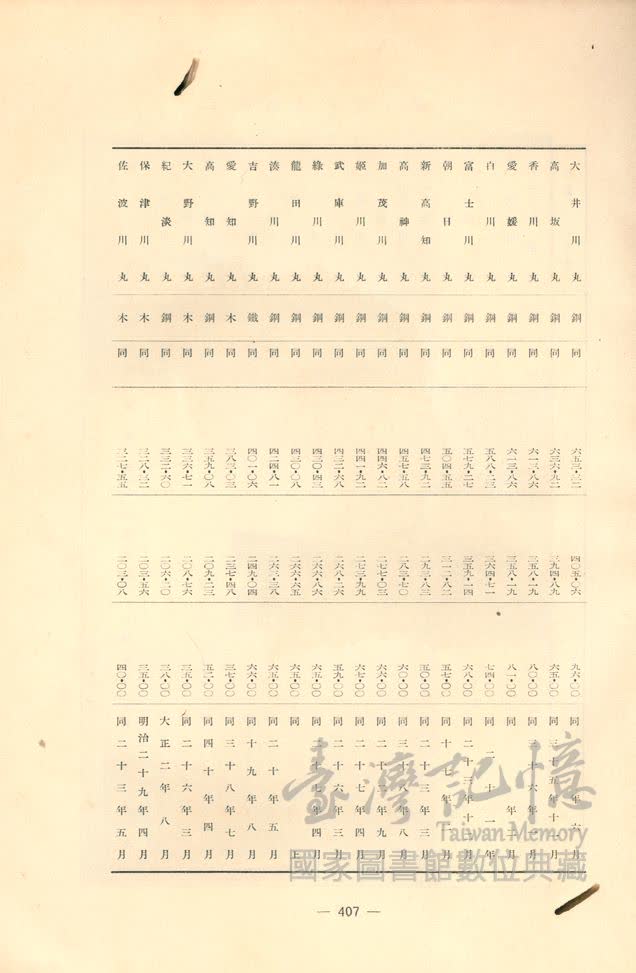 大井川丸 鋼 同 六五三・三二 四〇五・〇六 九六・〇〇 同 年六月
高坂丸 鋼 同 六三六・九二 三九四・八九 六五・〇〇 同三十五年十一月
香川丸 鋼 同 六一三・八六 三五八・一九 八〇・〇〇 同三十六年一月
愛媛丸 鋼 同 六一三・八六 三五八・一九 八一・〇〇 同 年二月
白川丸 鋼 同 五八八・二三 三六四・七一 七四・〇〇 同二十一年
富士川丸 鋼 同 五七九・二七 三五九・一四 六八・〇〇 同二十三年十二月
朝日丸 鋼 同 五〇四・五五 三一二・八二 五七・〇〇 同十七年 月
新高知丸 鋼 同 四七三・九二 二九三・八三 五〇・〇〇 同二十三年三月
高神丸 鋼 同 四五七・五八 二八三・七〇 六〇・〇〇 同三十八年八月
加茂川丸 鋼 同 四四六・八二 二七七・〇三 六六・〇〇 同二十二年九月
姬川丸 鋼 同 四四一・九二 二七三・九九 六七・〇〇 同二十七年四月
武庫川丸 鋼 同 四三二・六八 二六八・二六 五九・〇〇 同二十六年三月
綠川丸 鋼 同 四三〇・四三 二六六・八六 六五・〇〇 同二十七年四月
龍田川丸 鋼 同 四三〇・〇八 二六六・六五 五五・〇〇 同 正月
湊川丸 鋼 同 四二四・八一 二六三・三八 六五・〇〇 同二十年五月
吉野川丸 鐵 同 四〇一・〇六 二四九・〇四 六六・〇〇 同十九年八月
愛知丸 木 同 三八三・〇三 二三七・四八 三七・〇〇 同三十八年七月
高知丸 鋼 同 三五九・〇八 二〇九・二三 五二・〇〇 同四十年四月
大野川丸 木 同 三三六・七一 二〇八・七六 三五・〇〇 同二十六年三月
紀淡丸 鋼 同 三三二・六〇 二〇六・二〇 三八・〇〇 大正二年八月
保津川丸 木 同 三二八・三二 二〇三・五六 三五・〇〇 明治二十九年四月
佐波川丸 木 同 三二七・五五 二〇三・〇八 四〇・〇〇 同二十三年五月
臺灣記憶
Taiwan Memory
國家圖書館數位典藏
— 407 —